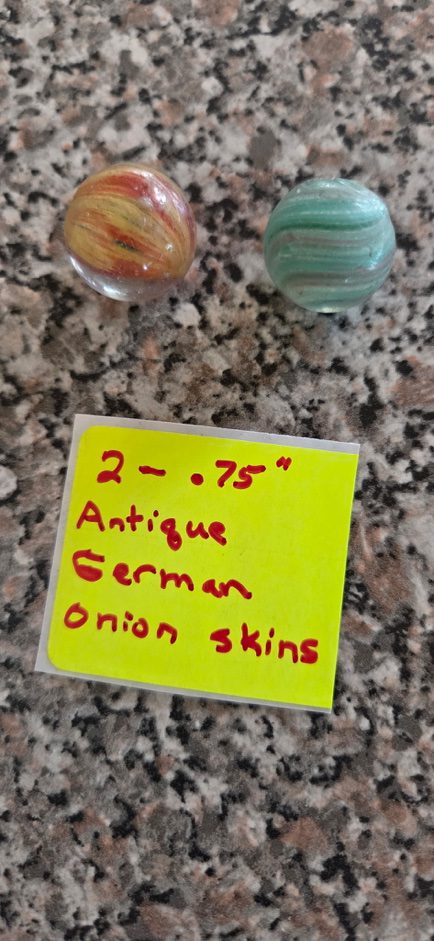 2 - .75"
Antique
German
onion skins